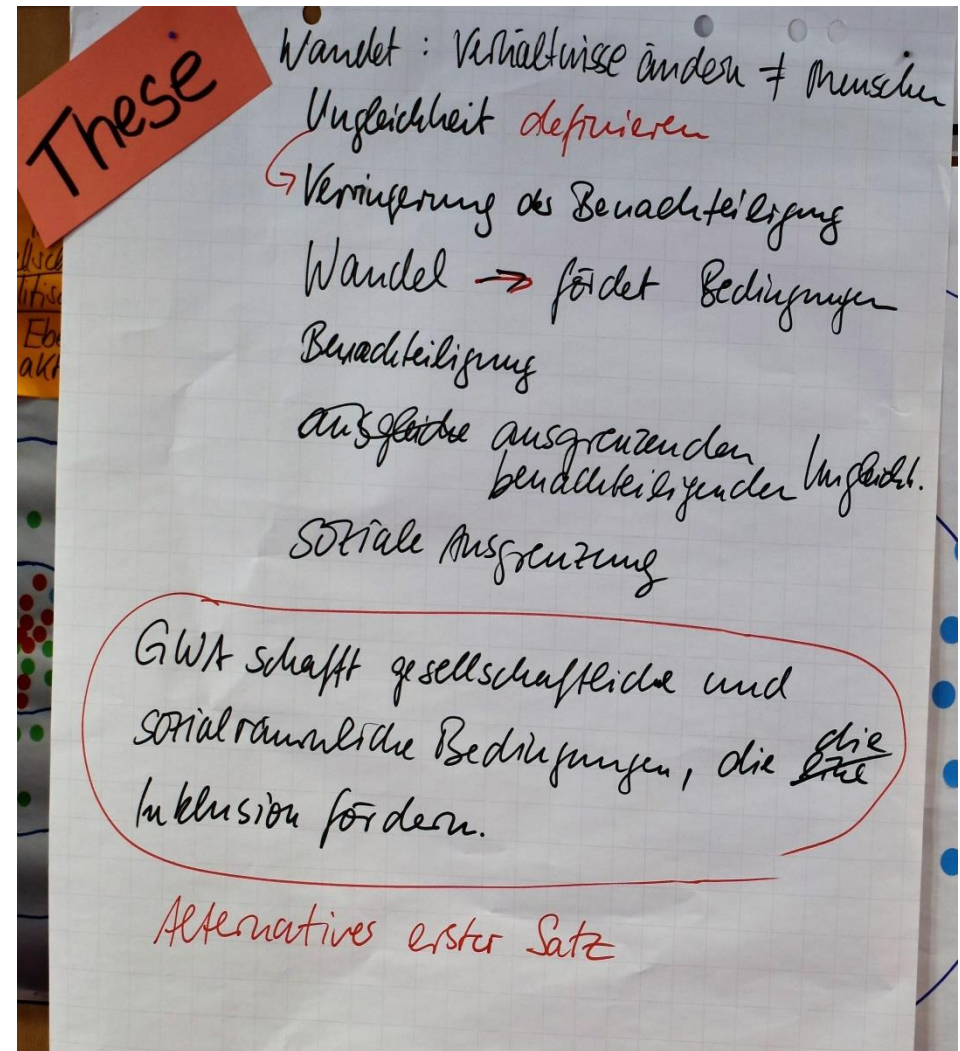 These
Wandel : Verhältnisse ändern ≠ Menschen
Ungleichheit definieren
Verringerung der Benachteiligung
Wandel → fördet Bedingungen
Benachteiligung
ausgleiche ausgrenzenden
benachteiligenden Ungleich.
soziale Ausgrenzung
GWA schafft gesellschaftliche und
sozialräumliche Bedingungen, die eine die
Inklusion fördern.
Alternatives erster Satz
Ebe